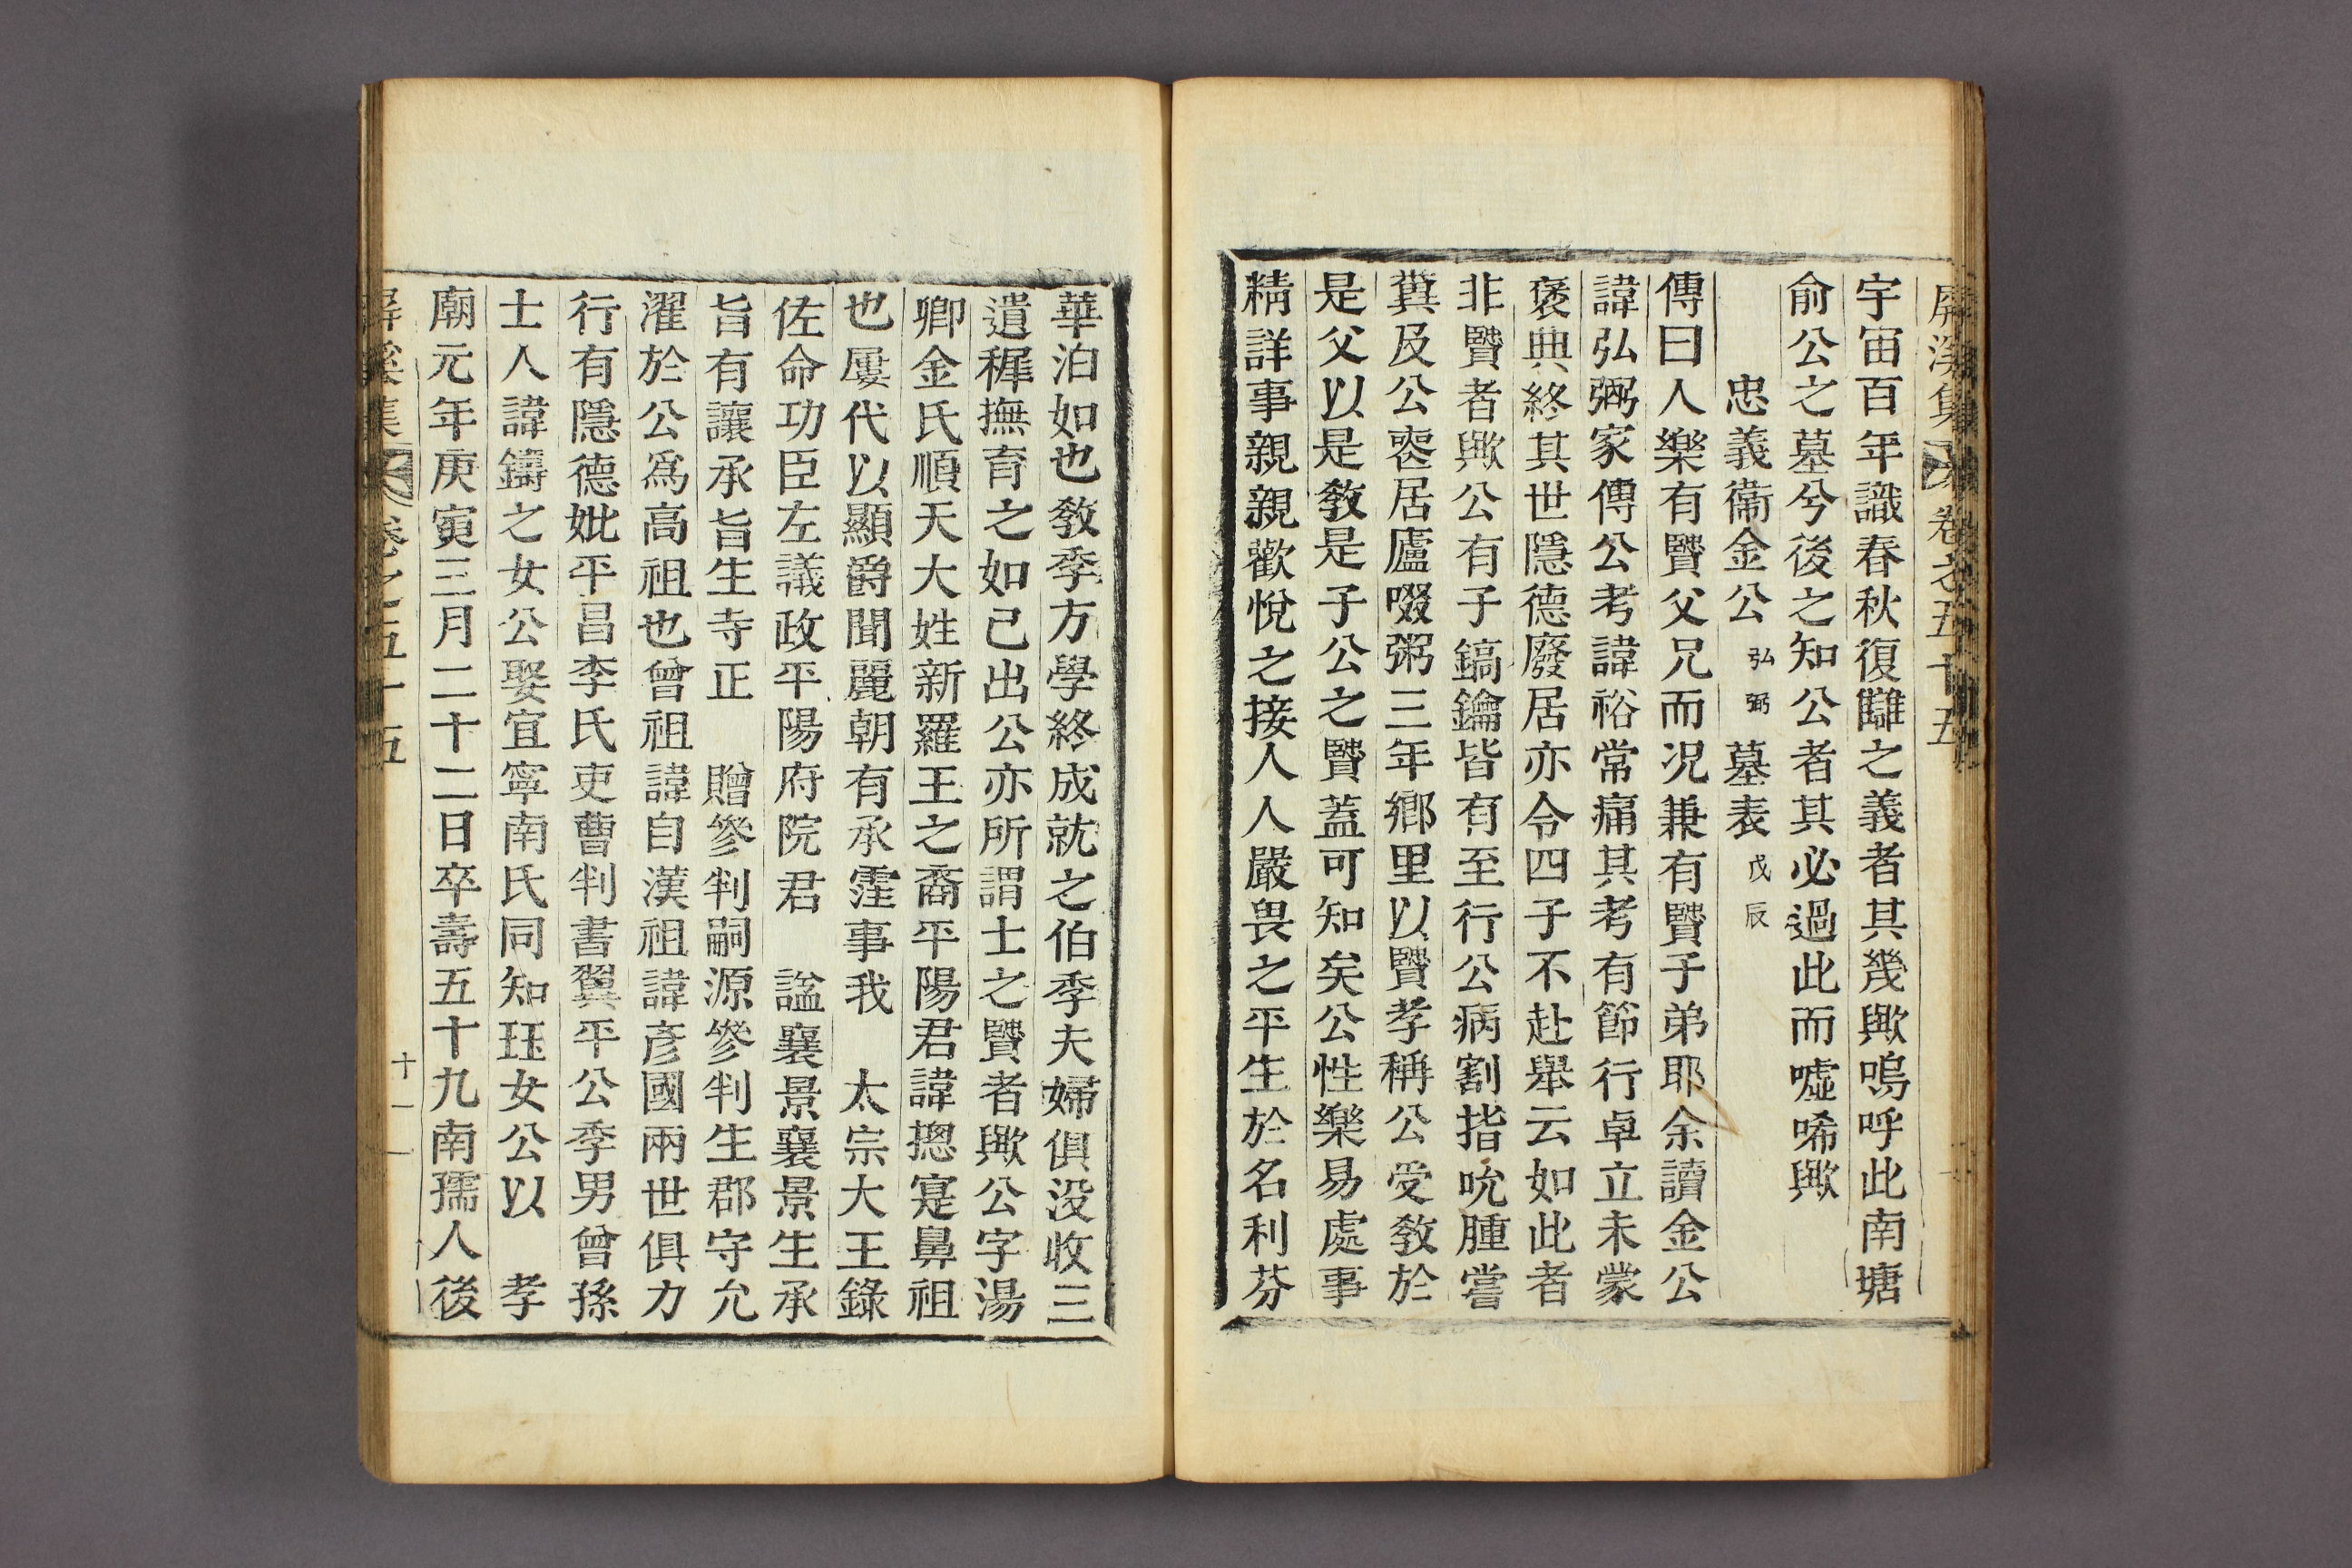 屛溪集 卷之五十五
宇宙百年識春秋復讎之義者其幾歟嗚呼此南塘
俞公之墓兮後之知公者其必過此而噓唏歟
忠義衛金公 弘弼 墓表 戊辰
傳曰人樂有賢父兄而况兼有賢子弟耶余讀金公
諱弘弼家傳公考諱裕常痛其考有節行卓立未蒙
褒典終其世隱德廢居亦令四子不赴舉云如此者
非賢者歟公有子鎬鑰皆有至行公病割指吮腫嘗
糞及公喪居廬啜粥三年鄕里以賢孝稱公受敎於
是父以是敎是子公之賢蓋可知矣公性樂易處事
精詳事親親歡悅之接人人嚴畏之平生於名利芬
華泊如也敎季方學終成就之伯季夫婦俱没收三
遺穉撫育之如己出公亦所謂士之賢者歟公字湯
卿金氏順天大姓新羅王之裔平陽君諱摠寔鼻祖
也屢代以顯爵聞麗朝有承霔事我 太宗大王錄
佐命功臣左議政平陽府院君 謚襄景襄景生承
旨有讓承旨生寺正 贈叅判嗣源叅判生郡守允
濯於公爲高祖也曾祖諱自漢祖諱彦國兩世俱力
行有隱德妣平昌李氏吏曹判書翼平公季男曾孫
士人諱鑄之女公娶宜寧南氏同知珏女公以 孝
廟元年庚寅三月二十二日卒壽五十九南孺人後
屛溪集 卷之五十五 十一